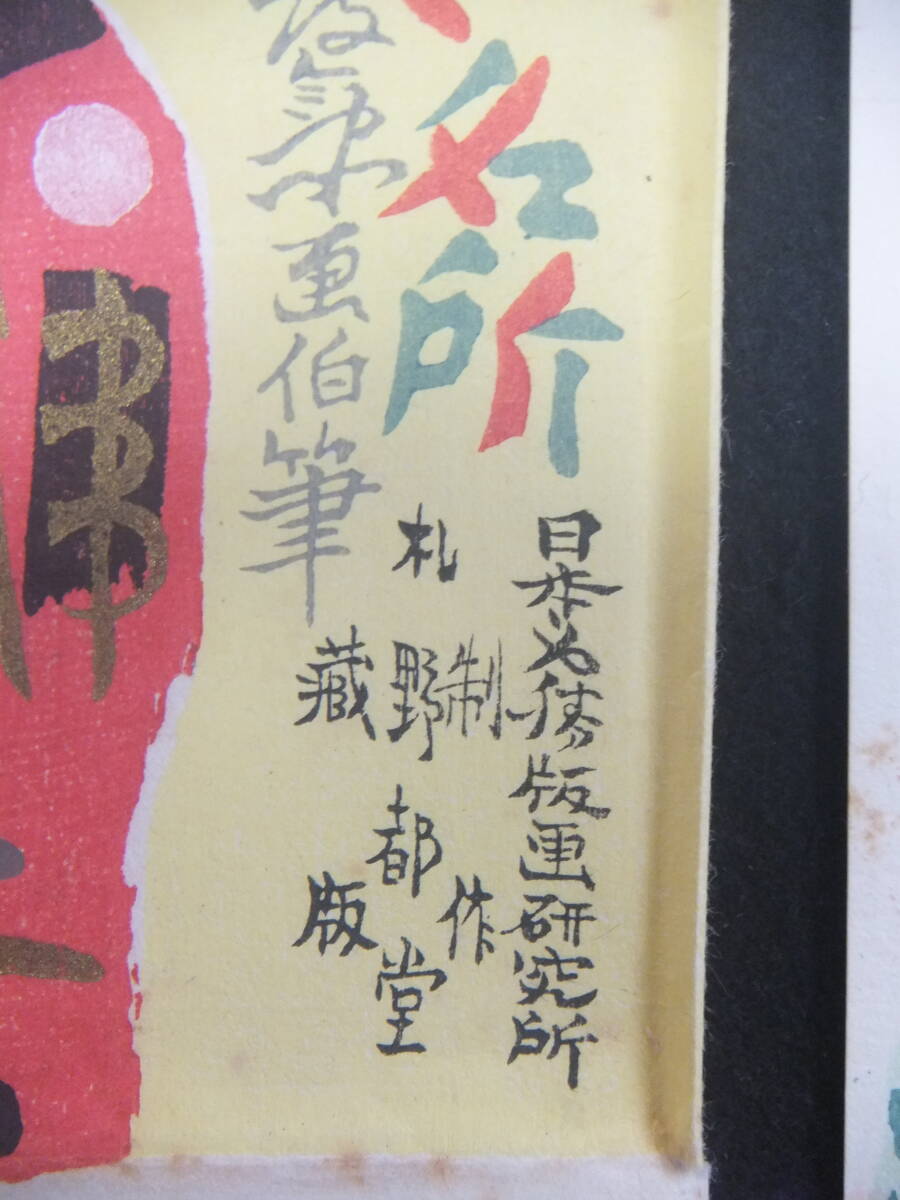 名所
日本美術版画研究所
制作
札野都堂
藏版
画伯筆